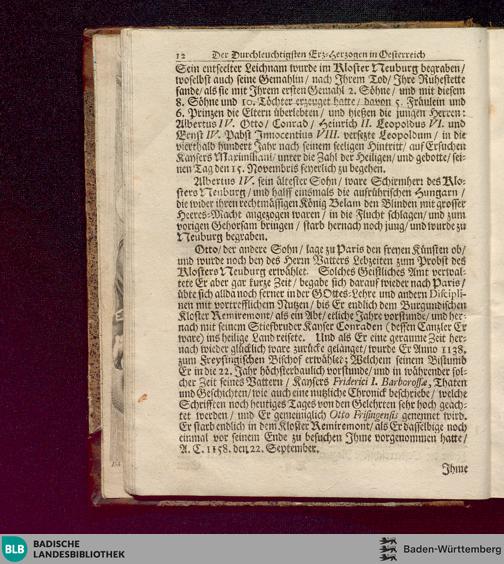 12 Der Durchleuchtigsten Erz-Herzogen in Oesterreich
Sein entseelter Leichnam wurde im Kloster Neuburg begraben/
woselbst auch seine Gemahlin/ nach Ihrem Tod/ Ihre Ruhestette
fande/ als sie mit Ihrem ersten Gemahl 2. Söhne/ und mit diesem
8. Söhne und 10. Töchter erzeuget hatte/ davon 5. Fräulein und
6. Prinzen die Eltern überlebten/ und hiessen die jungen Herren:
Albertus IV. Otto/ Conrad/ Heinrich II. Leopoldus VI. und
Ernst IV. Pabst Innocentius VIII. versezte Leopoldum/ in die
vierthalb hundert Jahr nach seinem seeligen Hintritt/ auf Ersuchen
Kaysers Maximiliani/ unter die Zahl der Heiligen/ und gebotte/ sei-
nen Tag den 15. Novembris feyerlich zu begehen.
Albertus IV. sein ältester Sohn/ ware Schirmherr des Klo-
sters Neuburg/ und halff einsmals die aufrührischen Hungarn/
die wider ihren rechtmässigen König Belam den Blinden mit grosser
Heeres-Macht angezogen waren/ in die Flucht schlagen/ und zum
vorigen Gehorsam bringen/ starb hernach noch jung/ und wurde zu
Neuburg begraben.
Otto/ der andere Sohn/ lage zu Paris den freyen Künsten ob/
und wurde noch bey des Herrn Vatters Lebzeiten zum Probst des
Klosters Neuburg erwählet. Solches Geistliches Amt verwal-
tete Er aber gar kurze Zeit/ begabe sich darauf wieder nach Paris/
übte sich allda noch ferner in der GOttes-Lehre und andern Discipli-
nen mit vortrefflichem Nutzen/ bis Er endlich dem Burgundischen
Kloster Remiremont/ als ein Abt/ etliche Jahre vorstunde/ und her-
nach mit seinem Stiefbruder Kayser Conraden (dessen Canzler Er
ware) ins heilige Land reisete. Und als Er eine geraume Zeit her-
nach wieder glücklich ware zurücke gelanget/ wurde Er Anno 1138.
zum Freysingischen Bischof erwählet; Welchem seinem Bistumb
Er in die 22. Jahr höchsterbaulich vorstunde/ und in währender sol-
cher Zeit seines Vattern/ Kaysers Friderici I. Barbarossæ, Thaten
und Geschichten/ wie auch eine nutzliche Chronick beschriebe/ welche
Schrifften noch heutiges Tages von den Gelehrten sehr hoch geach-
tet werden/ und Er gemeiniglich Otto Frisingensis genennet wird.
Er starb endlich in dem Kloster Remiremont/ als Er dasselbige noch
einmal vor seinem Ende zu besuchen Ihme vorgenommen hatte/
A. C. 1158. den 22. September.
Ihme
BLB BADISCHE
LANDESBIBLIOTHEK
Baden-Württemberg